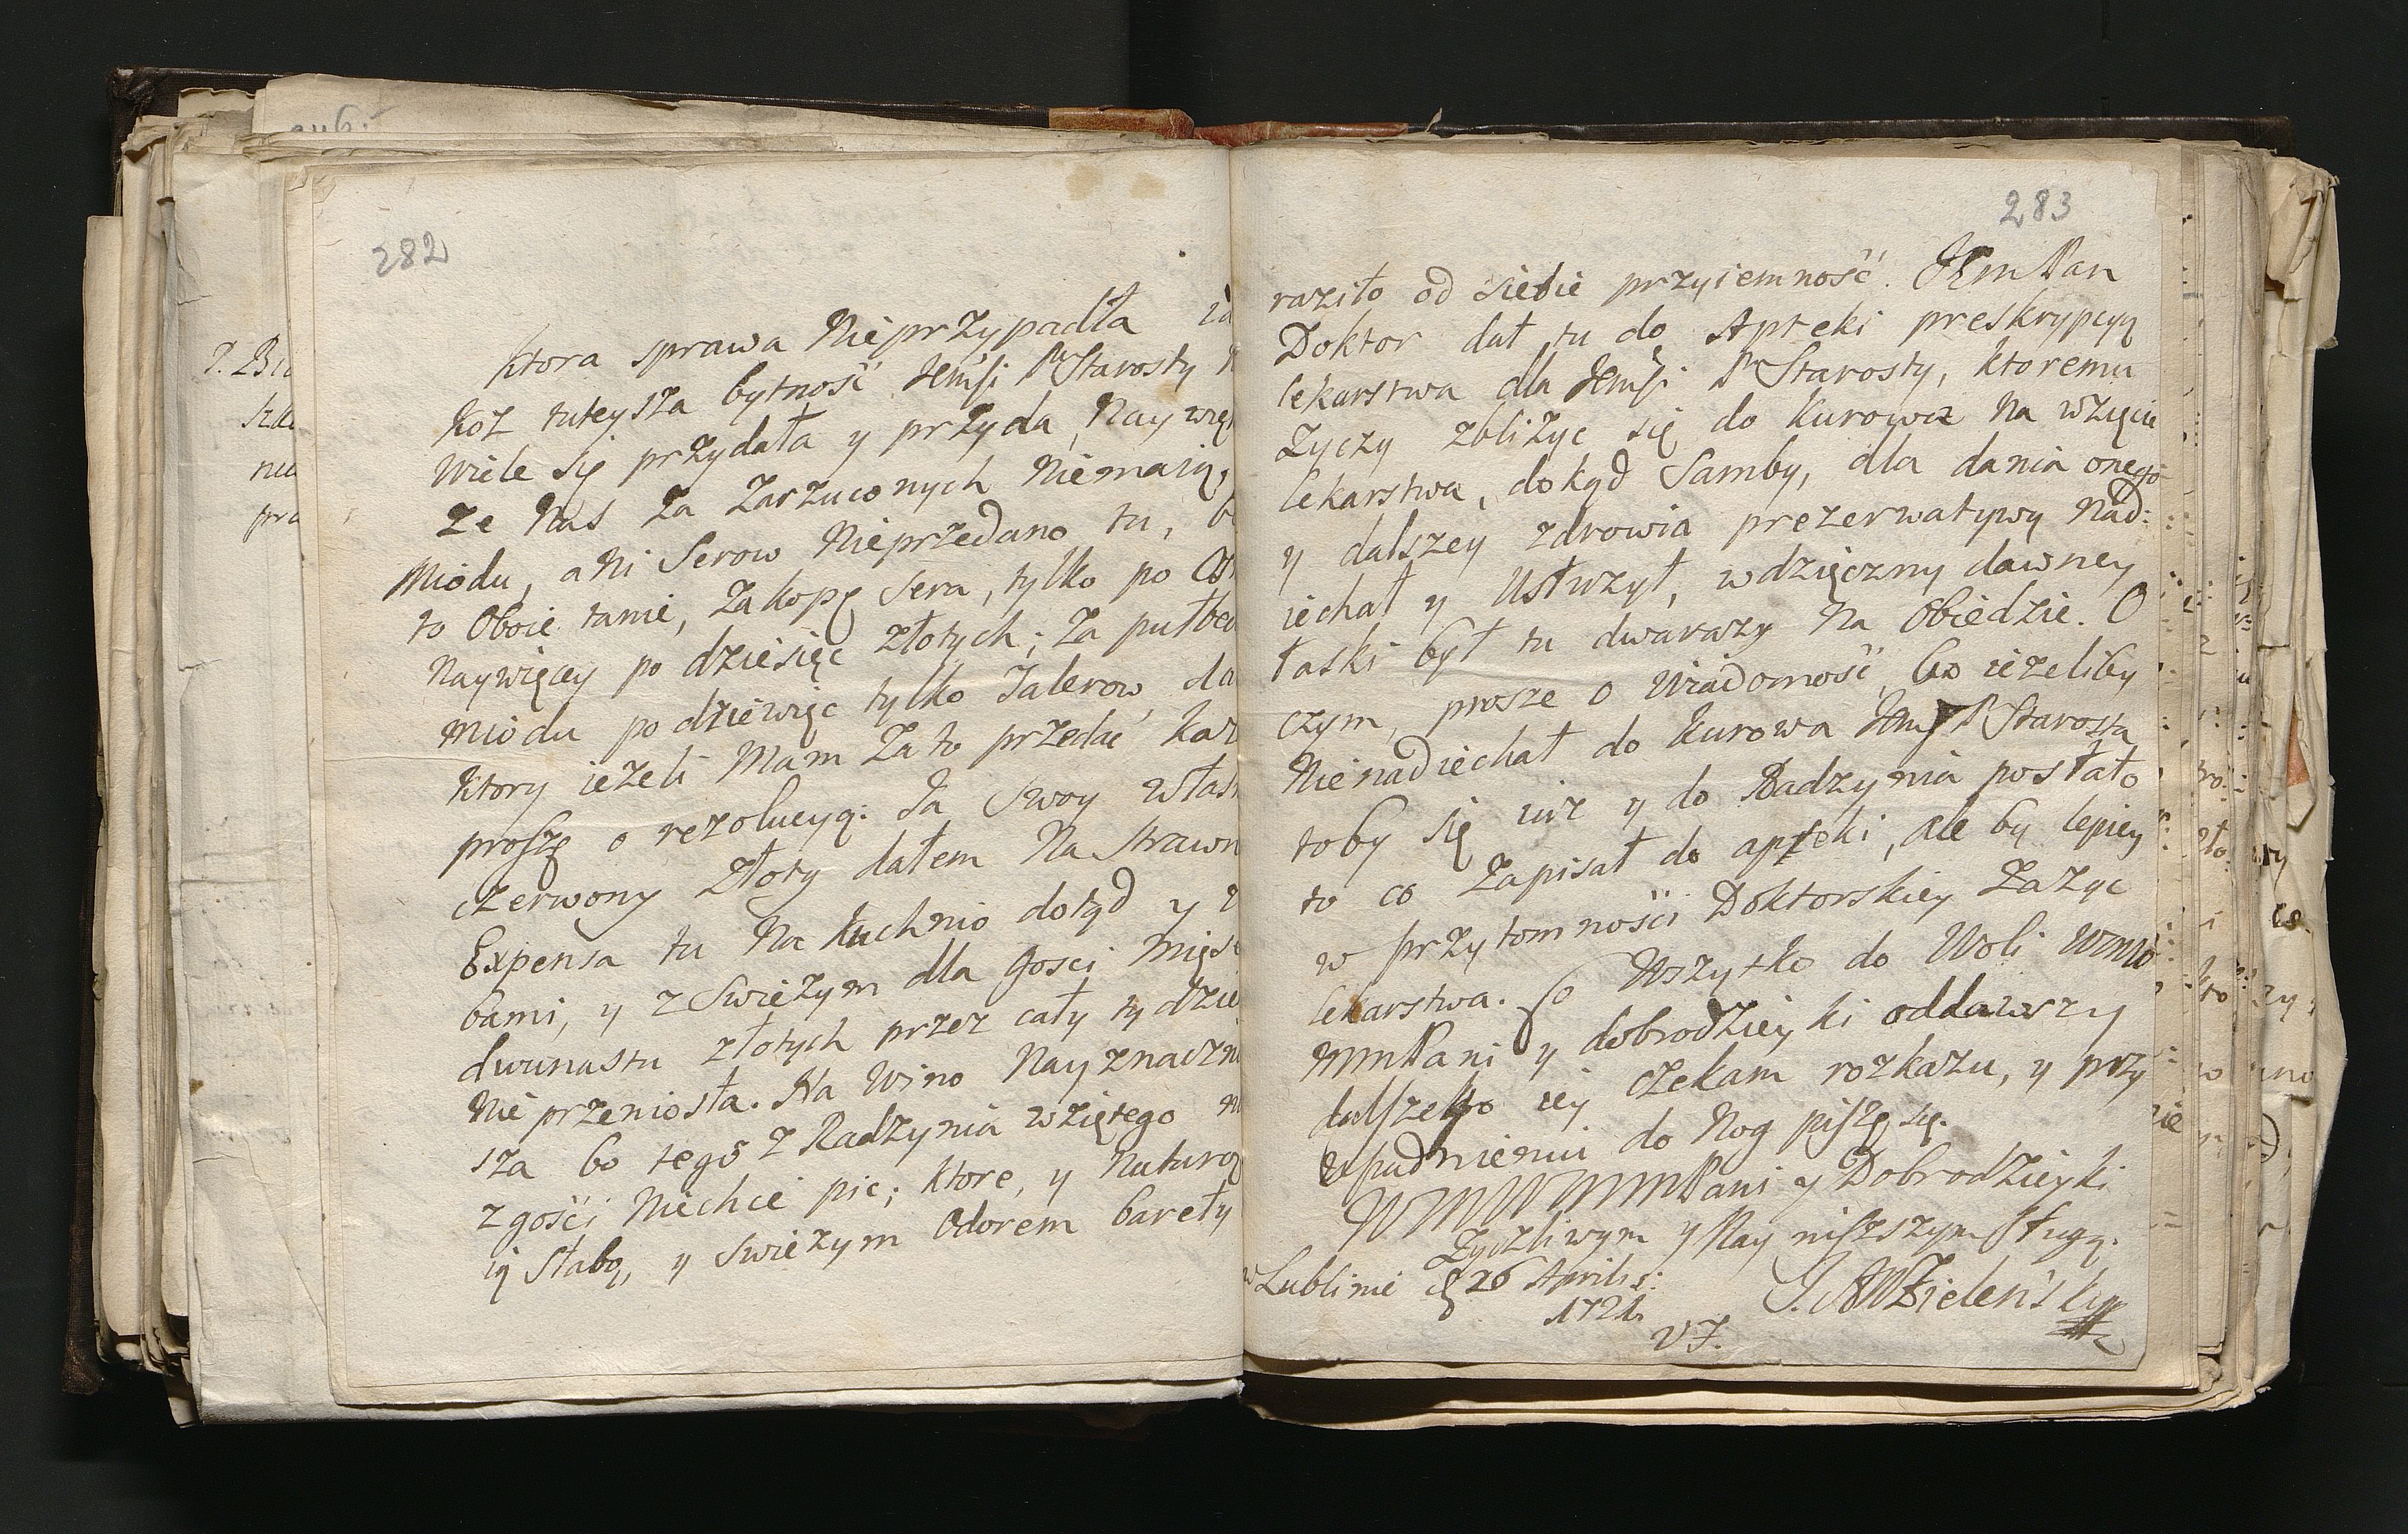 282
ktora sprawa Nieprzypadła ia
koż tuteysza bytność Jemści Pa Starosty
wiele się przydała y przyda, Naywię
ze Nas za zarzuconych Niemaią,
Miodu, aNi Serow Nieprzedano tu, b
to Oboie tanie, za kopę sera, tylko po
Naywięcey po dziesięć złotych; za pułbe
miodu po dziewięć tylko Talerow, da
ktory ieżeli Mam za to przedać kaz
proszę o rezolucyą. Ja swoy właś
czerwony złoty dałem Na strawn
Expensa tu Na kuchnio dotąd y z
bami, y z swieżym dla gosci mięs
dwunastu złotych przez cały tydzie
Nie przeniosła. Na wino Nayznaczni
sza bo tego z Radzynia wziętego n
z gości Niechce pic; ktore, y Naturą
ią słabą, y swieżym Odorem bareły
283
raziło od siebie przyiemność. JEm Pan
Doktor dał tu do Apteki preskrypcyą
lekarstwa dla Jemści Pa Starosty, ktoremu
życzy zbliżyc się do Kurowa Na wzięcie
lekarstwa, dokąd Samby, dla dania onego
y dalszey zdrowia prezerwatywy Nad:
iechał y Usłużył, wdzięczny dawney
łaski był tu dwarazy Na Obiedzie. O
czym, prosze o Wiadomość, bo ieżeliby
Nienadiechał do Kurowa Jmć P Starosta
toby się iuż y do Radzynia posłało
to co Zapisał do apteki, ale by lepiey
w przytomności Doktorskiey Zażyc
lekarstwa. Wszytko do Woli WMW
MMPani y dobrodzieyki oddawszy
dalszego iey czekam rozkazu, y przy
upadnieniu do Nog piszę się.
WMWMMPani y Dobrodzieyki
Zyczliwym y Nay niższym sługą.
w Lublinie d 26 Aprilis:
1721.
S. A Zieleński